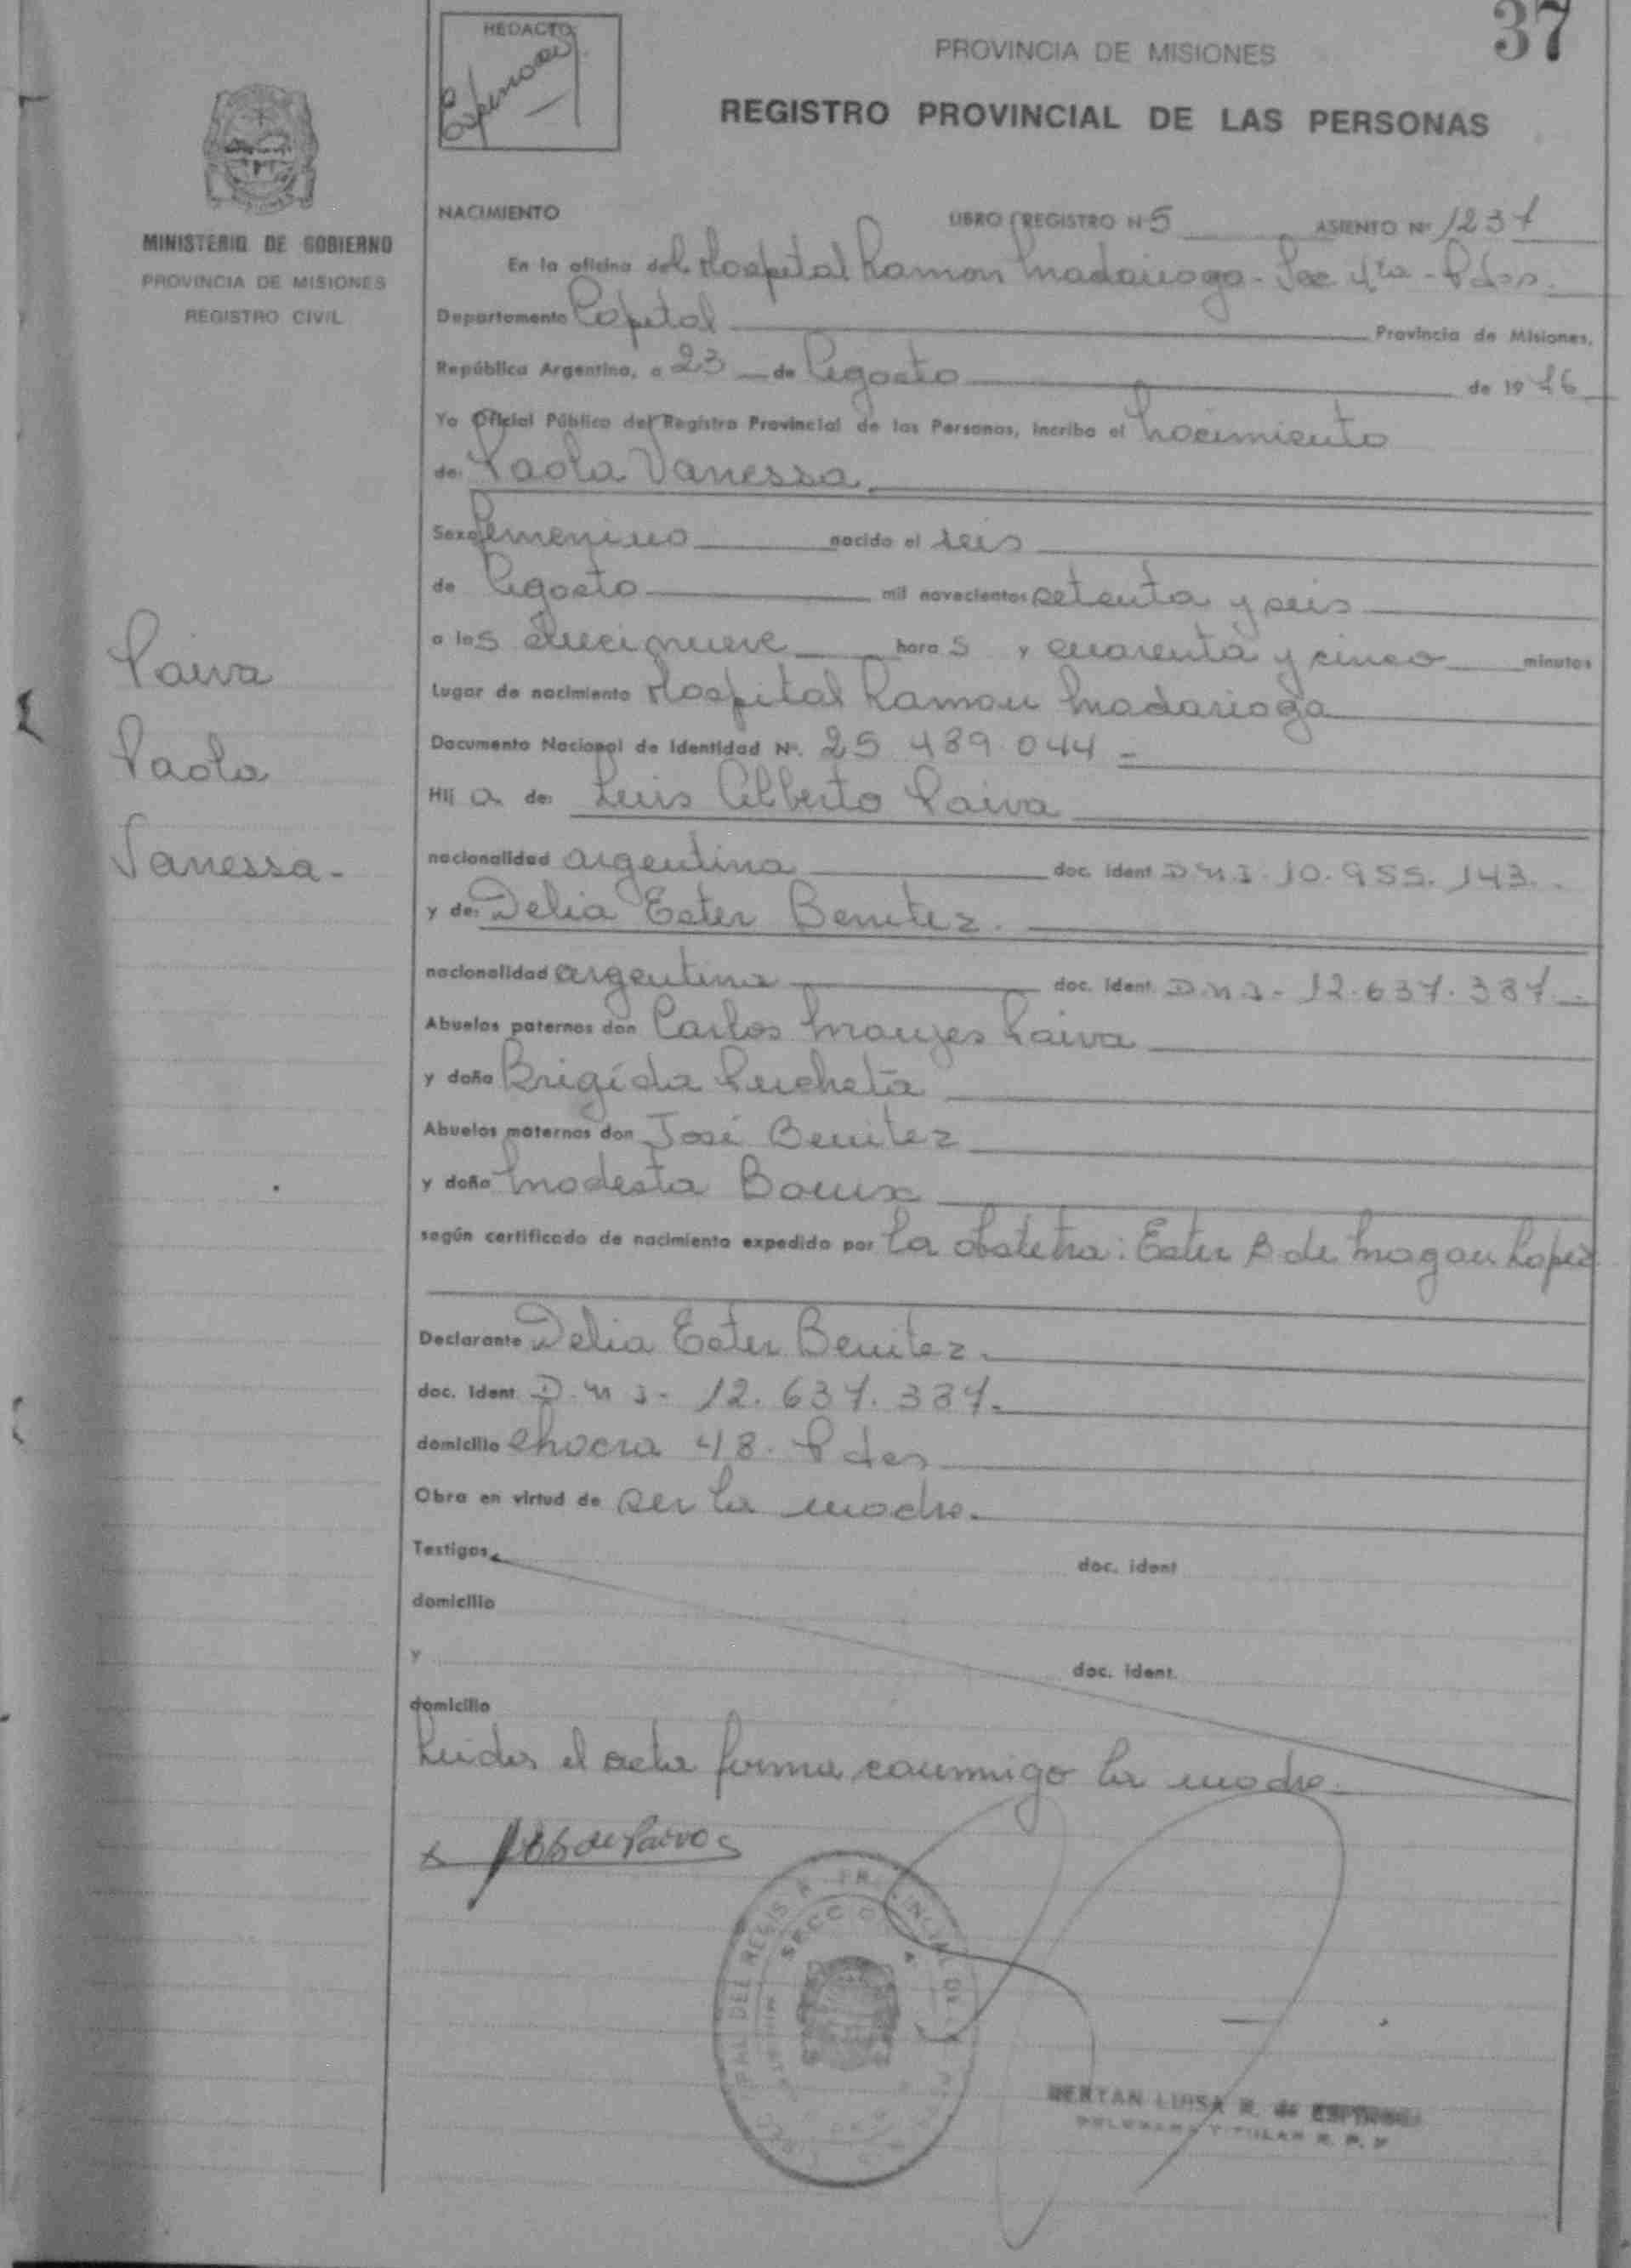 37
REDACTO
PROVINCIA DE MISIONES
REGISTRO PROVINCIAL DE LAS PERSONAS
MINISTERIO DE GOBIERNO
PROVINCIA DE MISIONES
REGISTRO CIVIL
NACIMIENTO LIBRO REGISTRO Nº 5 ASIENTO Nº 1237
En la oficina del Hospital Ramon Madariaga - Sec 4ta - Pdas.
Departamento Capital Provincia de Misiones,
República Argentina, a 23 de Agosto de 1976
Yo Oficial Público del Registro Provincial de las Personas, incribo el nacimiento
de: Paola Vanessa
Sexo femenino nacido el seis
de Agosto mil novecientos setenta y seis
a las diecinueve horas y cuarenta y cinco minutos
Lugar de nacimiento Hospital Ramon Madariaga
Documento Nacional de Identidad Nº. 25.489.044 -
Hij a de: Luis Alberto Paiva
nacionalidad argentina doc. ident D.N.I. 10.955.143.
y de: Delia Ester Benitez.
nacionalidad argentina doc. ident. D.N.I - 12.637.387 -
Abuelos paternos don Carlos Paiva
y doña Brigída
Abuelos maternos don José Benitez
y doña Modesta
según certificado de nacimiento expedido por la obstetra: Ester B de Magan Lopez
Declarante Delia Ester Benitez.
doc. ident D.N.I - 12.637.387.
domicilio chacra 48. Pdas
Obra en virtud de ser la madre.
Testigos doc. ident
domicilio
y doc. ident.
domicilio
Leida el acta firma conmigo la madre.
x de Paiva
Paiva
Paola
Vanessa -
SECCION 4
LUISA R. de